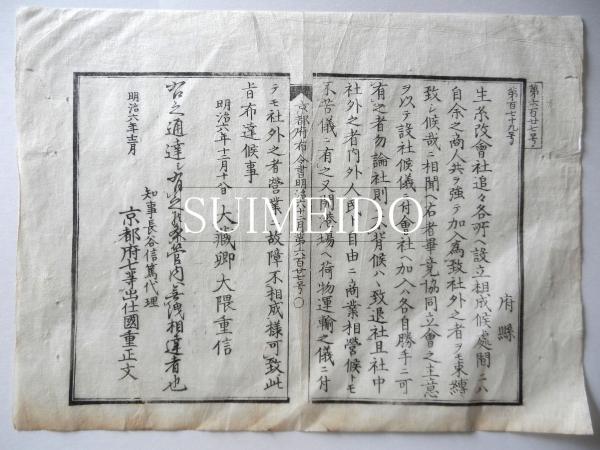 第六百廿七号
第百七十九号
府縣
生糸改會社追々各所ヘ設立相成候處間ニハ
自余之商人共ヲ強テ加入為致社外之者ヲモ束縛
致シ候哉ニ相聞ヘ右者畢竟協同立會之主意
ヲ以テ設社候儀ニ有會社ヘ加入ハ各自勝手ニ可
有之者勿論社則ニ不背候ハヽ致退社且社中
社外之者内外人民ト自由ニ商業相營候トモ
不苦儀ニ有之又開港場ヘ荷物運輸之儀ニ付
京都府布令書明治六年十二月第六百廿七号
テモ社外之者營業ノ故障不相成様可致此
旨布達候事
明治六年十二月十日
大藏卿大隈重信
右之通達シ有之候条管内無洩相達者也
明治六年十二月
知事長谷信篤代理
京都府七等出仕國重正文
SUIMEIDO